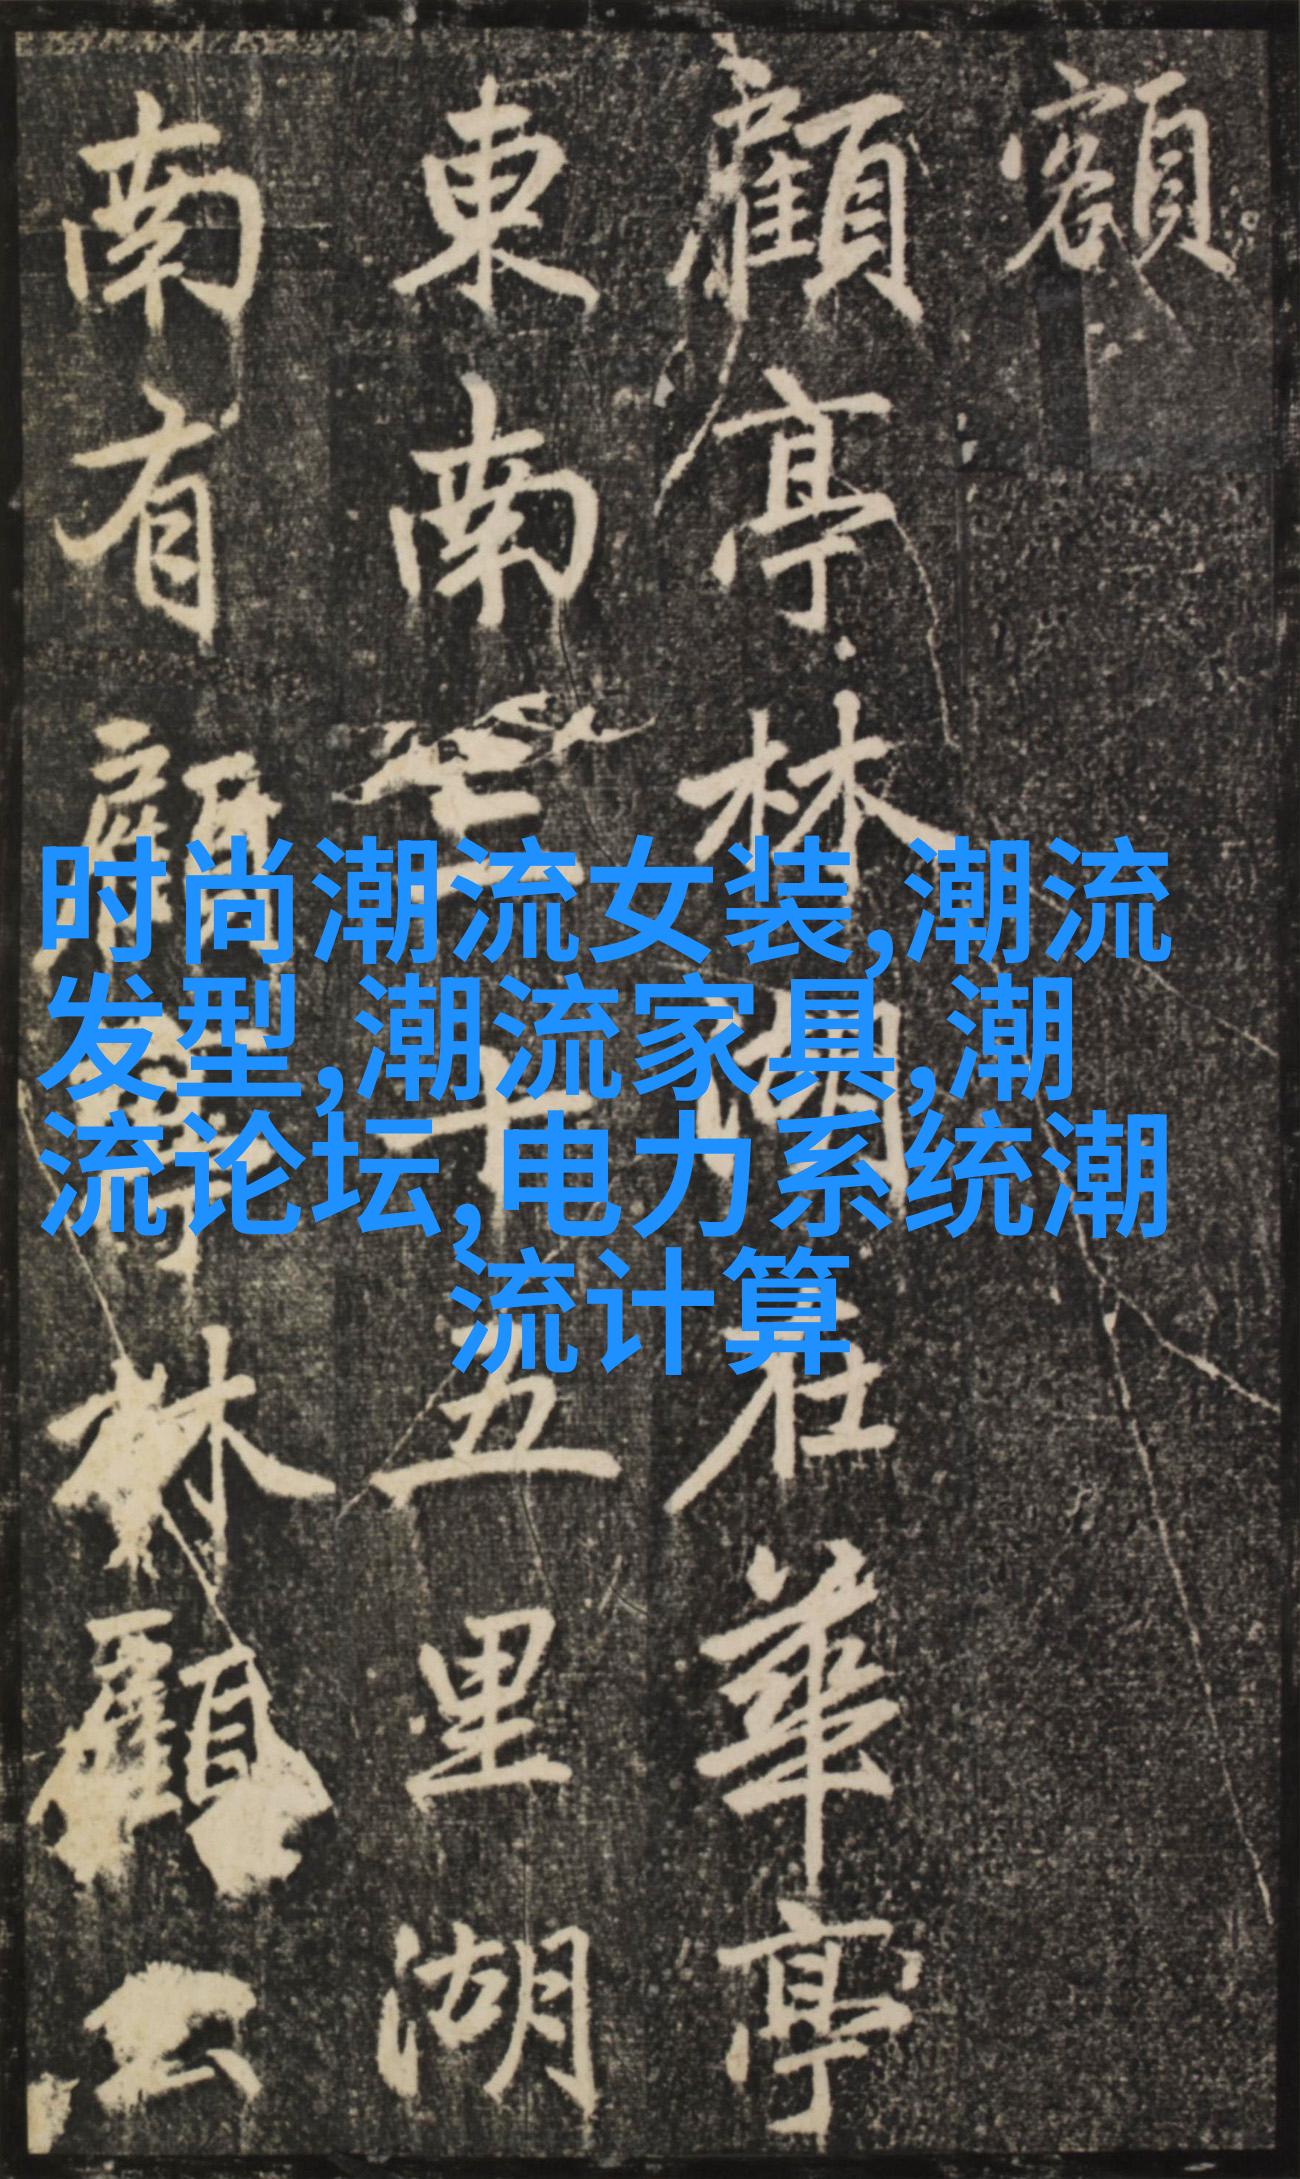 額
顧亭林湖在華亭
東南三十五里湖
南有顧亭林顧公
时尚潮流女装,潮流
发型,潮流家具,潮
流论坛,电力系统潮
流计算